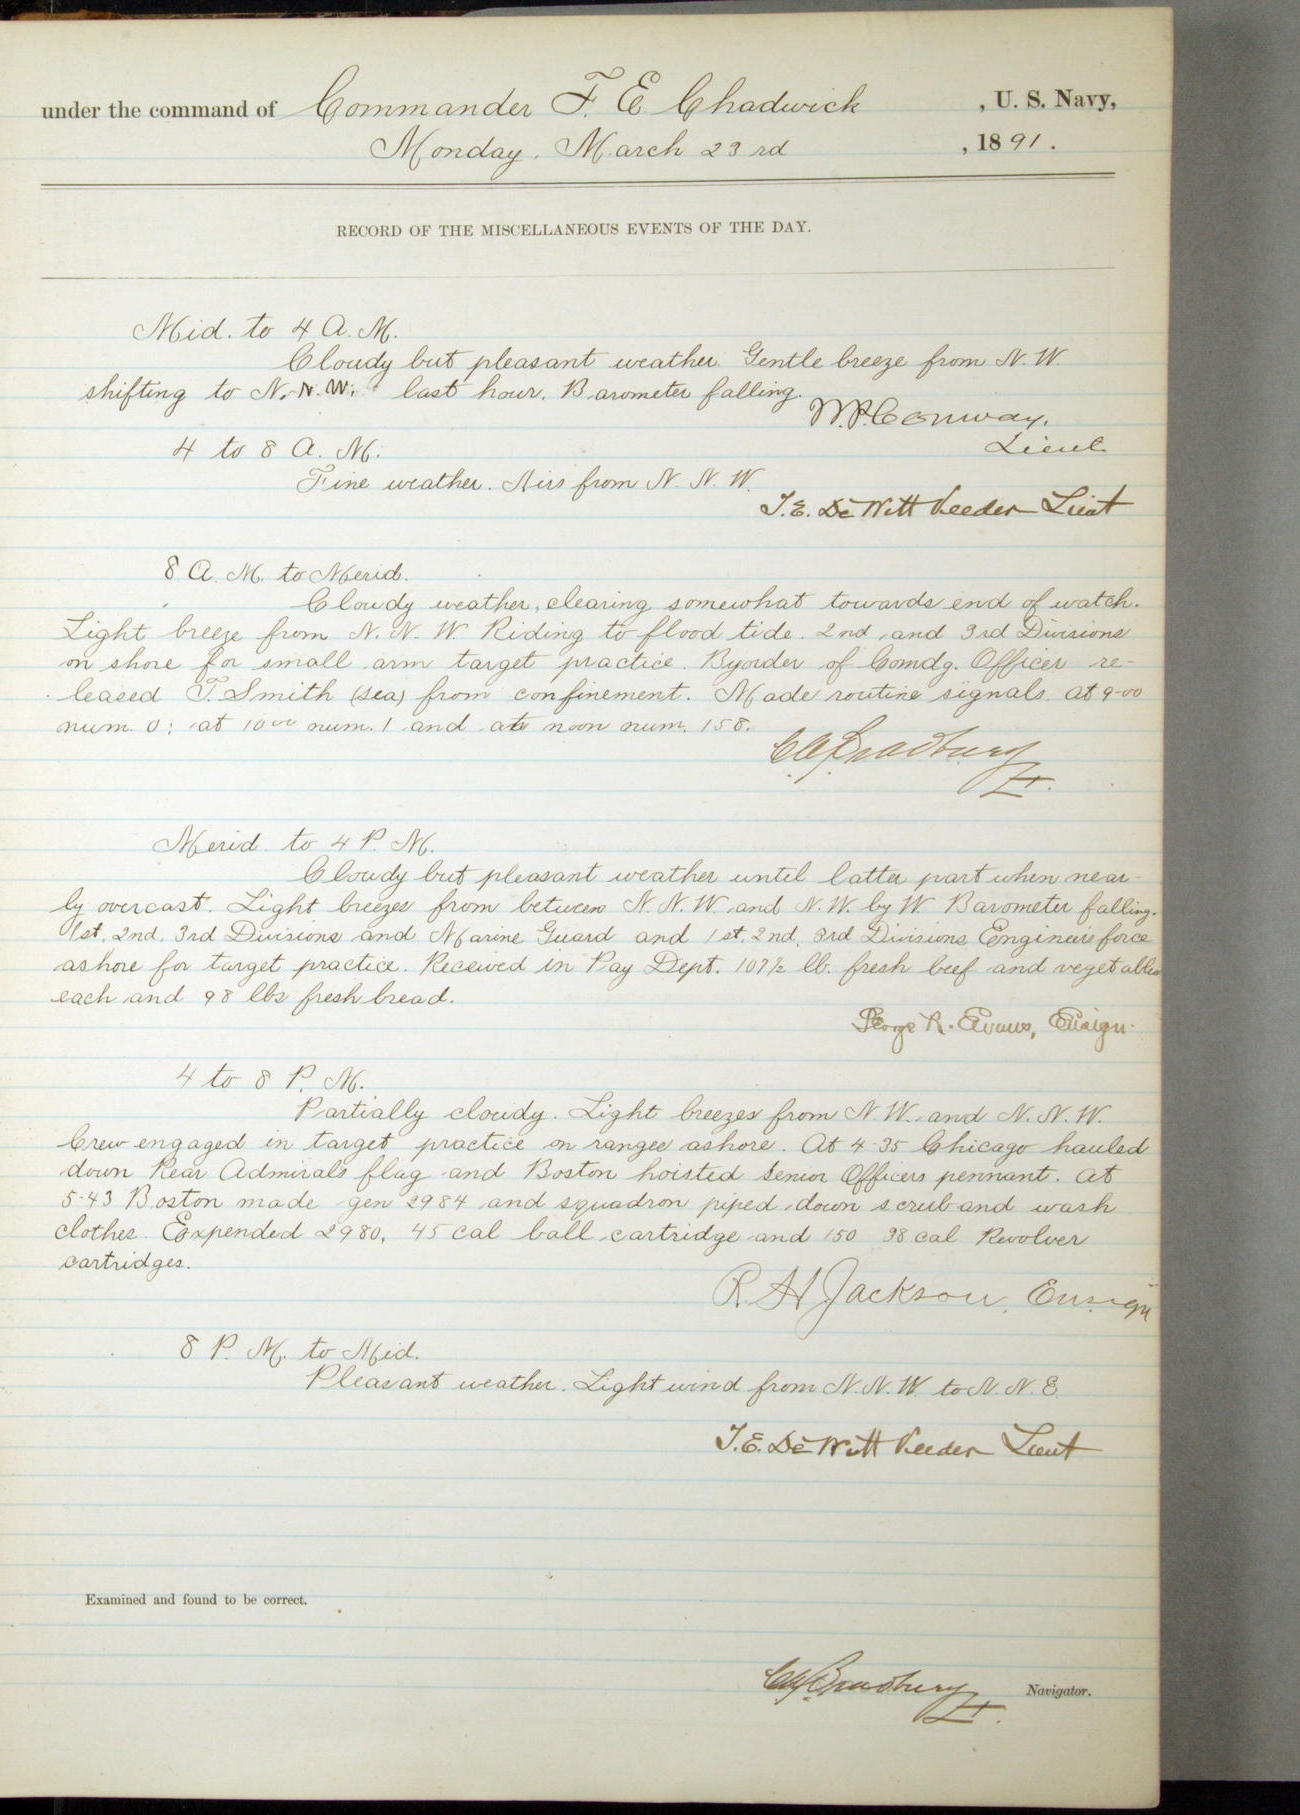 under the command of Commander F. E. Chadwick , U. S. Navy,
Monday. March 23rd , 1891.
RECORD OF THE MISCELLANEOUS EVENTS OF THE DAY.
Mid. to 4 A. M.
Cloudy but pleasant weather. Gentle breeze from N. W.
shifting to N. N. W. last hour. Barometer falling.
W.P. Conway,
Lieut.
4 to 8 A. M.
Fine weather. Airs from N. N. W.
T. E. DeWitt Veeder Lieut
8 A. M. to Merid.
Cloudy weather, clearing somewhat towards end of watch.
Light breeze from N. N. W. Riding to flood tide. 2nd and 3rd Divisions
on shore for small arm target practice. By order of Comdg. Officer re-
leased T. Smith (sea) from confinement. Made routine signals at 9-00
num. 0; at 10 00 num. 1 and at noon num. 158.
Bradbury
Lt.
Merid. to 4 P. M.
Cloudy but pleasant weather until latter part when near-
ly overcast. Light breezes from between N. N. W. and N. W. by W. Barometer falling.
1st, 2nd, 3rd Divisions and Marine Guard and 1st, 2nd, 3rd Divisions Engineers force
ashore for target practice. Received in Pay Dept. 107½ lb. fresh beef and vegetables
each and 98 lbs fresh bread.
George R. Evans, Ensign.
4 to 8 P. M.
Partially cloudy. Light breezes from N. W. and N. N. W.
Crew engaged in target practice on ranges ashore. At 4-35 Chicago hauled
down Rear Admirals flag and Boston hoisted Senior Officers pennant. At
5-43 Boston made gen 2984 and squadron piped down scrub and wash
clothes. Expended 2980, 45 cal ball cartridge and 150 38 cal Revolver
cartridges.
R. H. Jackson, Ensign
8 P. M. to Mid.
Pleasant weather. Light wind from N. N. W. to N. N. E.
T. E. DeWitt Veeder Lieut
Examined and found to be correct.
Bradbury
Lt. Navigator.